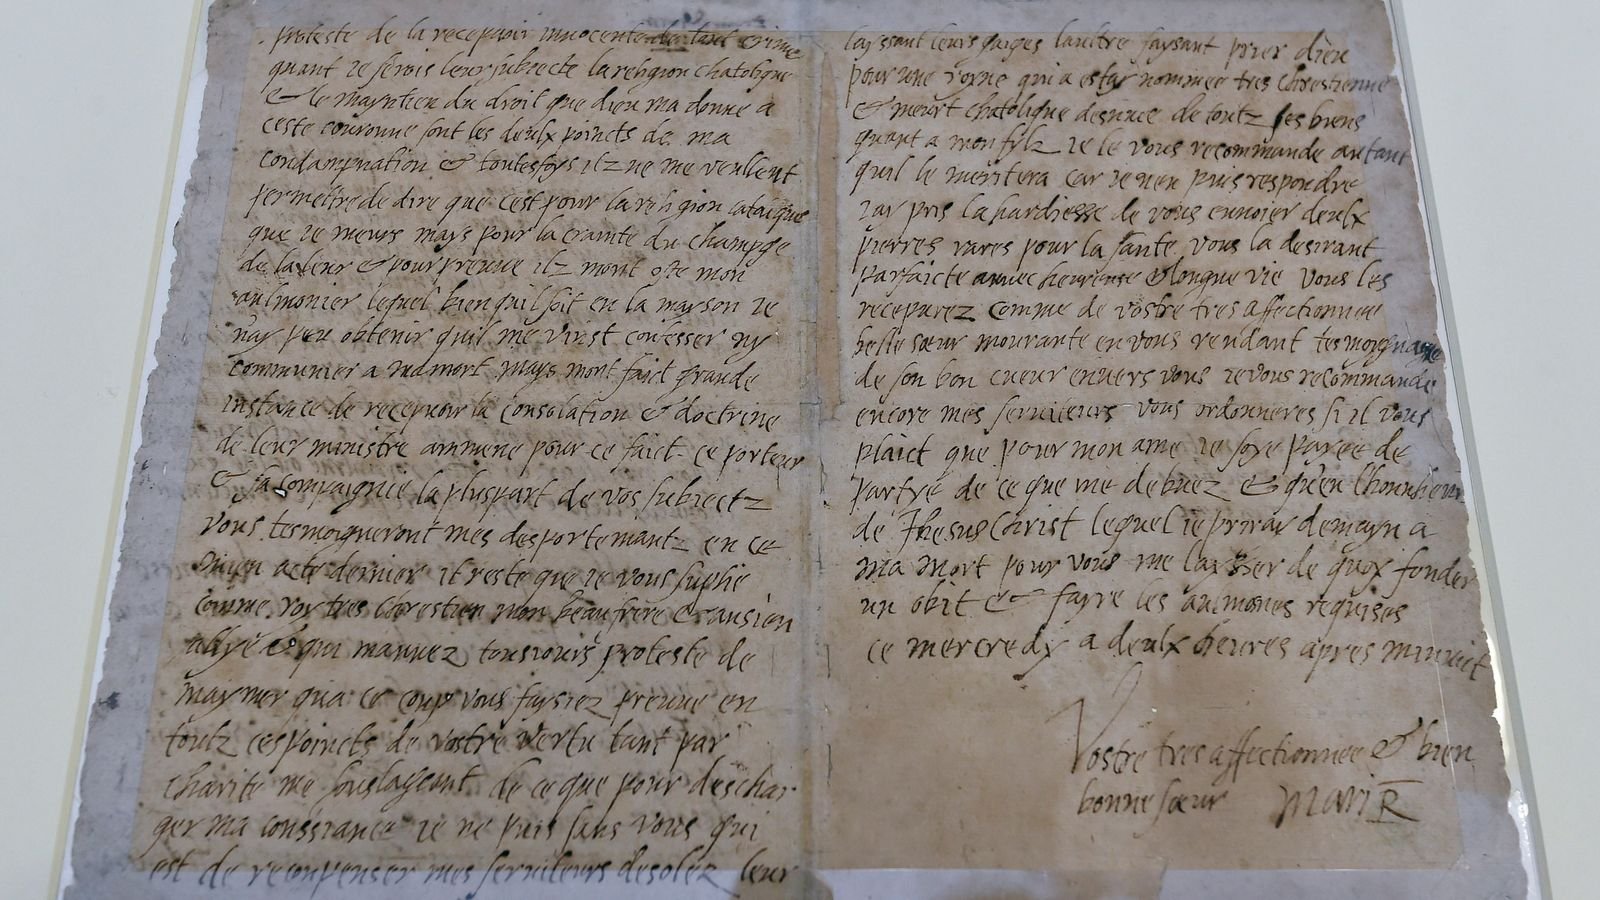 proteste de la recepvoir innocente de tout crime
quant je serois leur subjecte la religion chatolique
& le mayntien du droit que dieu ma donne a
ceste couronne sont les deulx poincts de ma
condampnation & toutesfoys ilz ne me veullent
permettre de dire que cest pour la religion catolique
que je meurs mays pour la crainte du champge
de la leur & pour preuve ilz mont oste mon
aulmonier lequel bien quil soit en la mayson je
nay peu obtenir quil me vinst confesser ny
communier a ma mort mays mont faict grande
instance de recepvoir la consolation & doctrine
de leur ministre ammene pour ce faict ce porteur
& sa compaignie la pluspart de vos subjectz
vous tesmoigneront mes desportemantz en ce
mien acte dernier il reste que je vous suplie
comme roy tres chrestien mon beau frere & ansien
allye & qui mauvez tousjours proteste de
maymer qua ce coup vous faysiez preuve en
toutz ces poincts de vostre vertu tant par
charite me souslageant de ce que pour deschar
ger ma conssiance je ne puis sans vous qui
est de recompenser mes serviteurs desolez leur
layssant leurs gaiges laultre faysant prier dieu
pour une royne qui a estay nommee tres chrestienne
& meurt chatolique desnuee de toutz ses biens
quant a mon fylz je le vous recommande autant
quil le meritera car je nen puis respondre
jay pris la hardiesse de vous envoier deulx
pierres rares pour la sante vous la desirant
parfaicte auvec heureuse & longue vie vous les
recepvrez comme de vostre tres affectionnee
belle sœur mourante en vous rendant tesmoygnage
de son bon cueur envers vous je vous recommande
encore mes serviteurs vous ordonneres si il vous
plaict que pour mon ame je soye payee de
partye de ce que me debvez & quen lhonnheur
de Jhesus Christ lequel je priray demayn a
ma mort pour vous me laysser de quoy fonder
un obit & fayre les aulmones requises
ce mercredy a deulx heures apres minuit
Vostre tres affectionnee & bien
bonne sœur Mari R